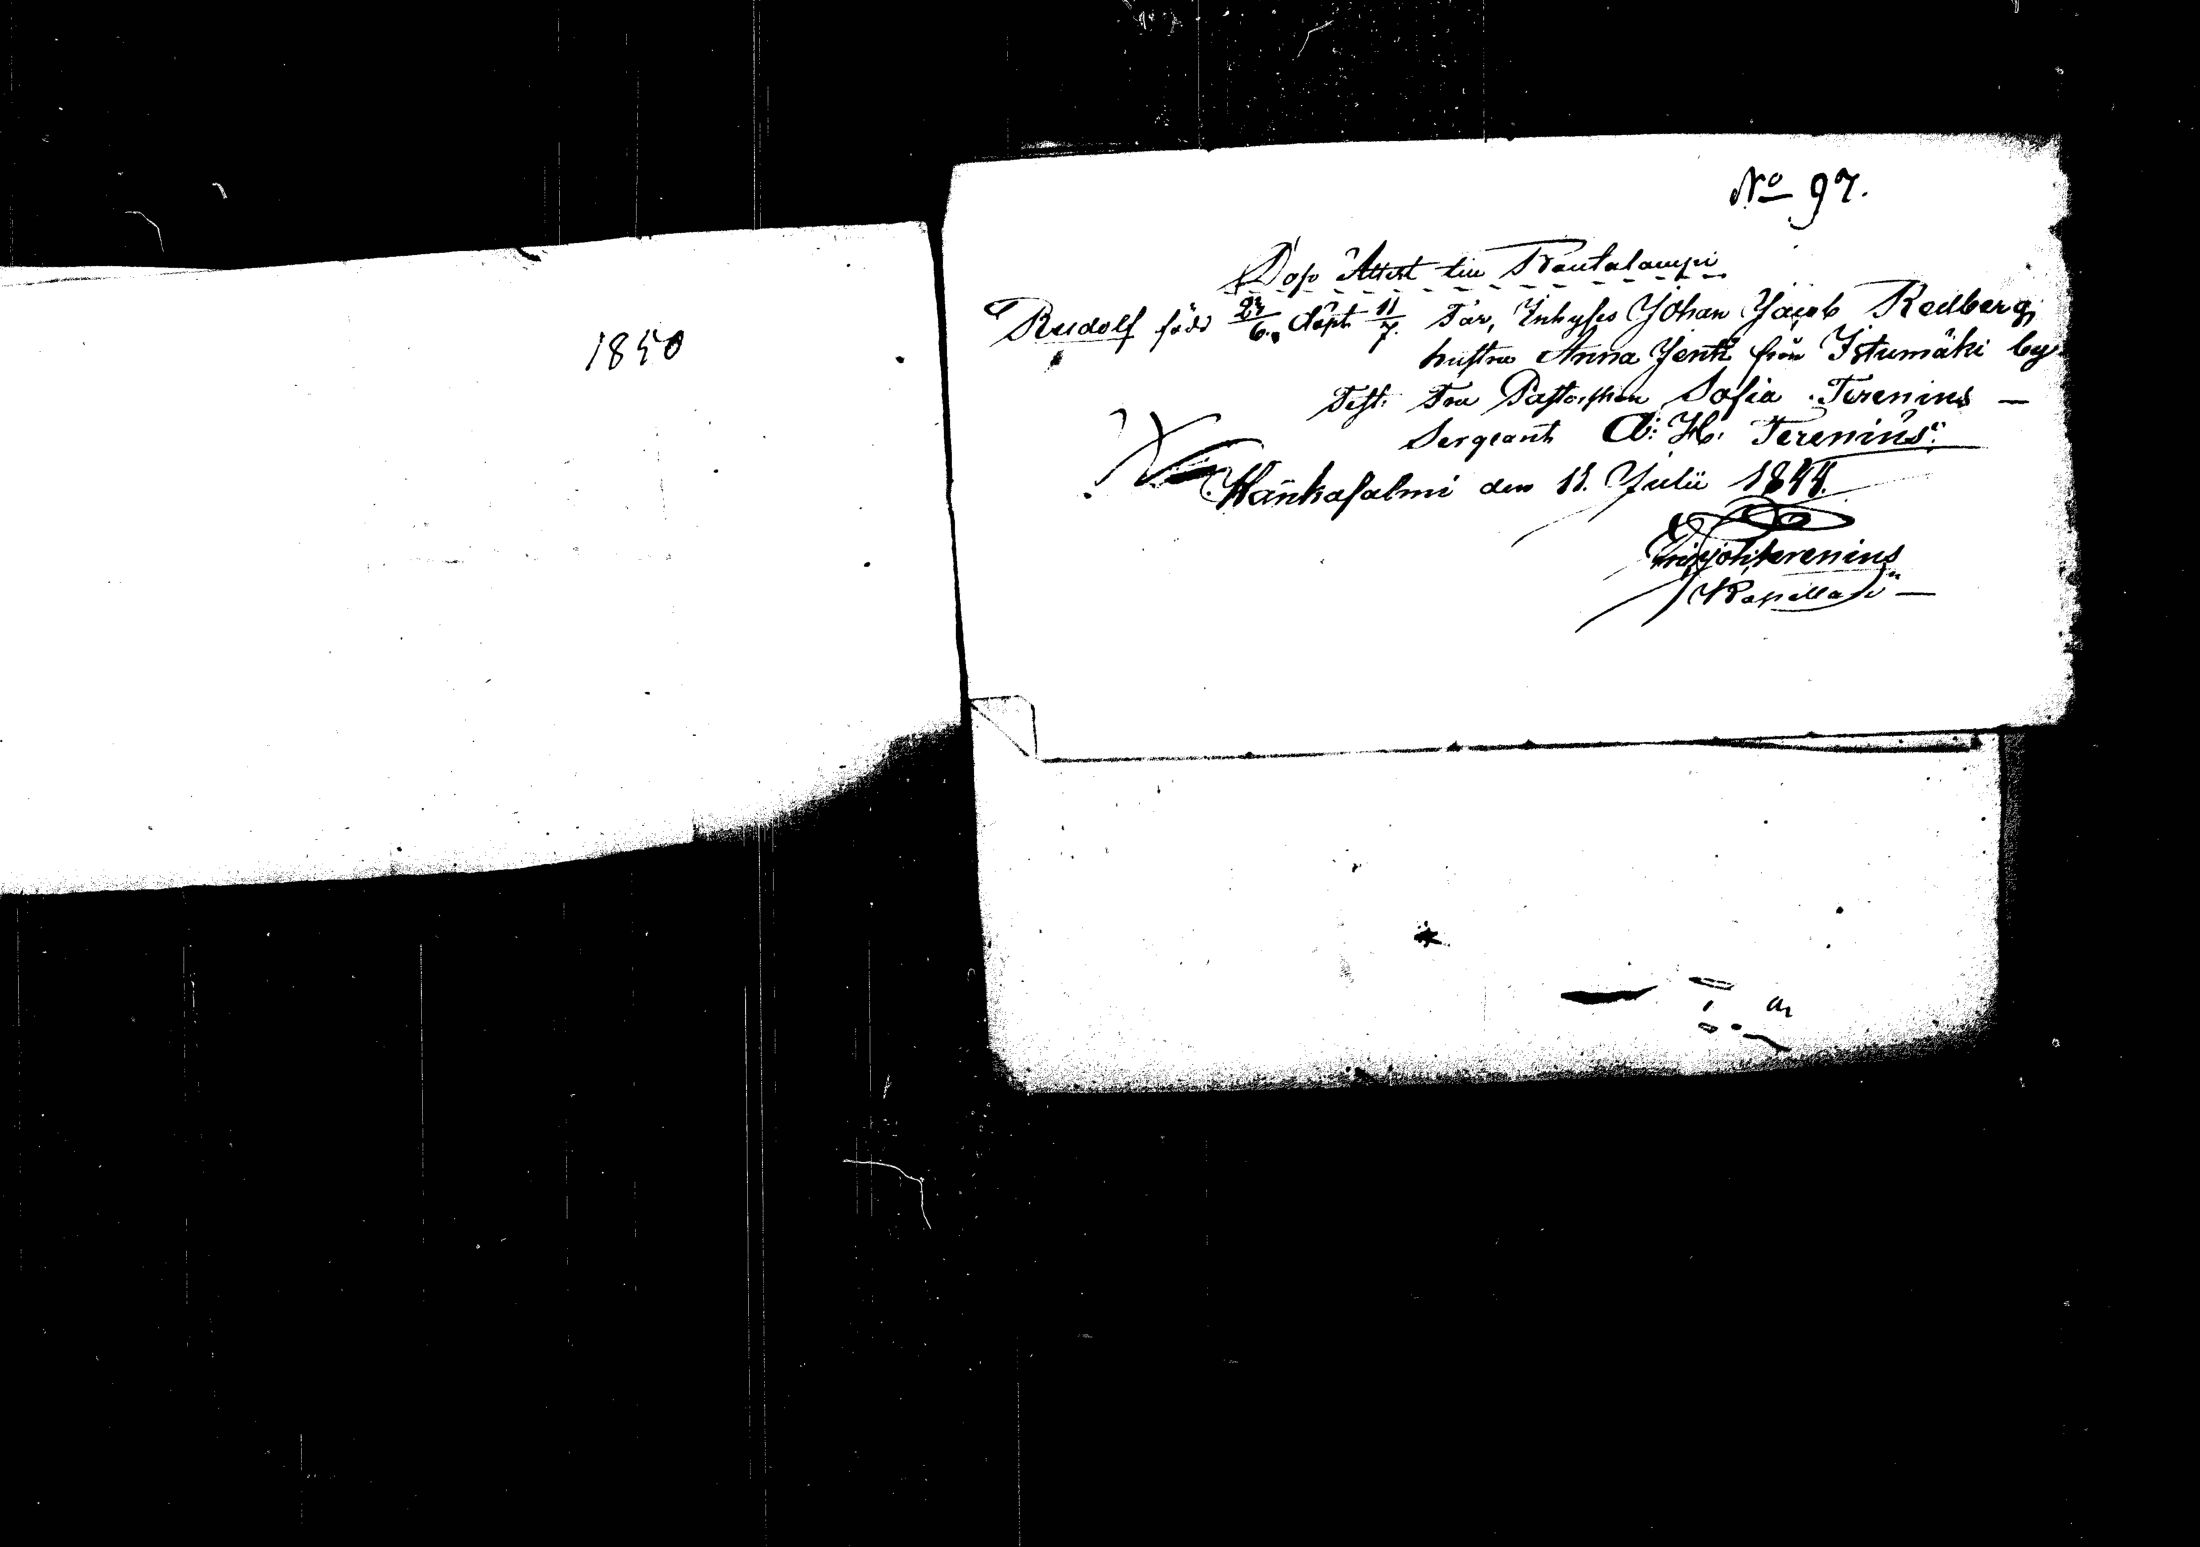 1850
No 97.
Dop Attest till Rautalampi
Rudolf född 27/6. döpt 11/7. Far, Inhyses Johan Jacob Redberg,
hustru Anna från Istumäki by.
Test: Fru Pastorskan Sofia Terenius —
Sergeant A: H: Terenius.
Hankasalmi den 11. Julii 1844.
Terenius
Kapellan —